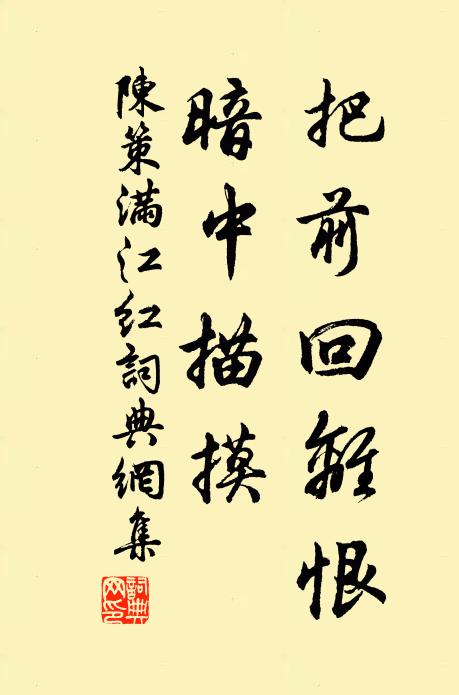 把前回離恨
暗中描摸
陳策滿江紅詞典網集
詞典网印